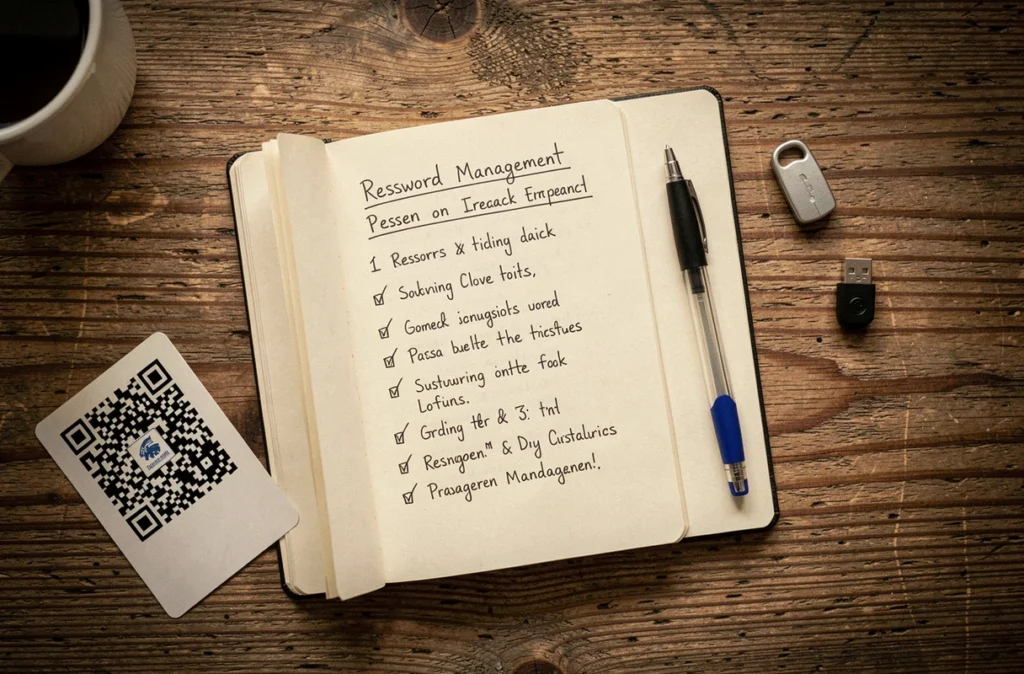 Ressword Management
Pessen on Irecack Empeanct
1 Ressorrs & tiding daick
Soutvning Clove toits,
Gomeck icnugsiots vored
Passa buelte the tricstues
Sustwuring ointte fook
Lofuns.
Grding ter & 3: tnt
Resngoen." & Diy Custalurics
Prasageren Mandagenen!.